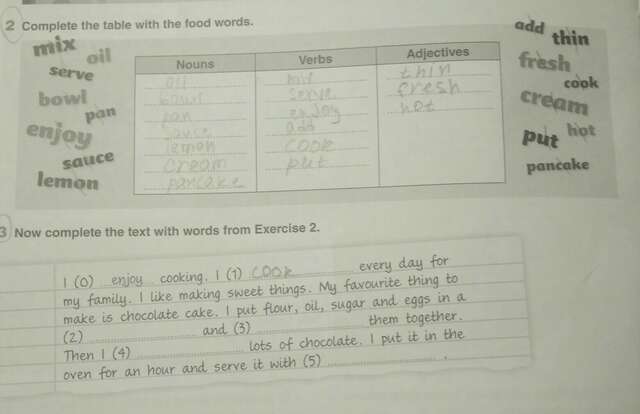 2 Complete the table with the food words.
mix
oil
serve
bowl
pan
enjoy
sauce
lemon
Nouns Verbs Adjectives
oil mix thin
bowl serve fresh
pan enjoy hot
sauce add
lemon cook
cream put
pancake
add
thin
fresh
cook
cream
put
hot
pancake
3 Now complete the text with words from Exercise 2.
I (0) enjoy cooking. I (1) cook every day for
my family. I like making sweet things. My favourite thing to
make is chocolate cake. I put flour, oil, sugar and eggs in a
(2) and (3) them together.
Then I (4) lots of chocolate. I put it in the
oven for an hour and serve it with (5) .